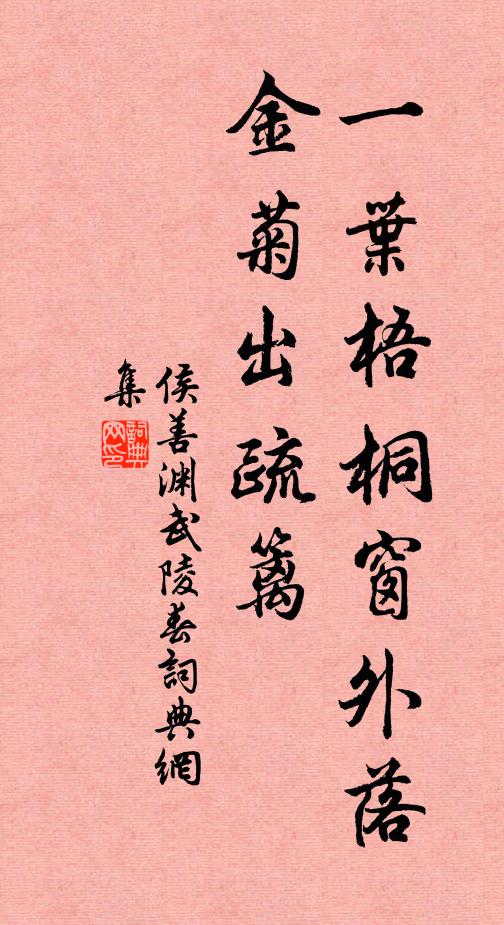 一葉梧桐窗外落
金菊出疏篱
侯善渊武陵春詞典網
集
詞典网印